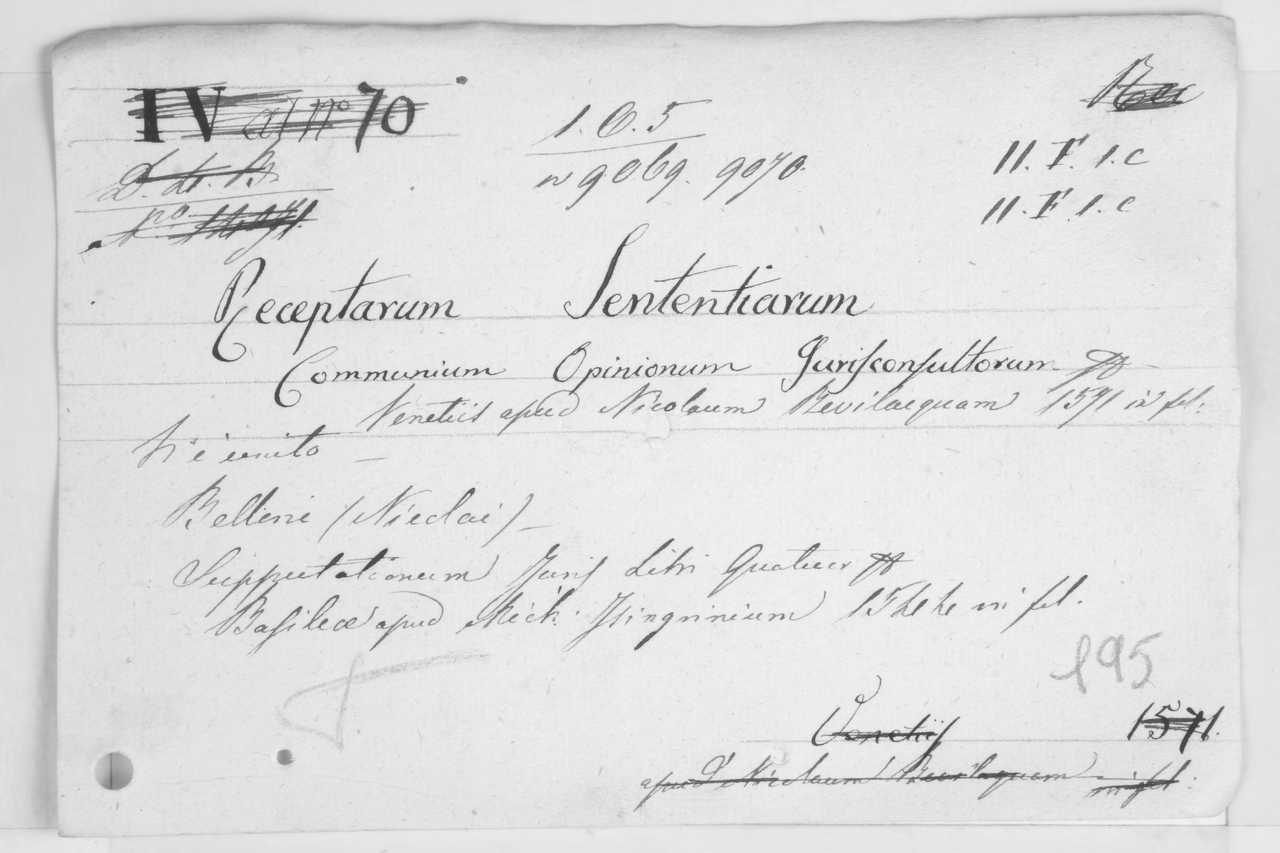 IV a) nº 70
Rec
1. O. 5
D. Lt. B.
nº 9069. 9070.
II. F. 1. C
II. F. 1. C
Nº 14971.
Receptarum Sententiarum
Communium Opinionum Jurisconsultorum
Venetiis apud Nicolaum Bevilacquam 1571 in fol:
Vi è unito —
Bellini (Nicolai) —
Supputationum Juris Libri Quatuor
Basileæ apud Mich: Isingrinium 1544 in fol.
195
Venetiis 1571.
apud Nicolaum Bevilaquam in fol: